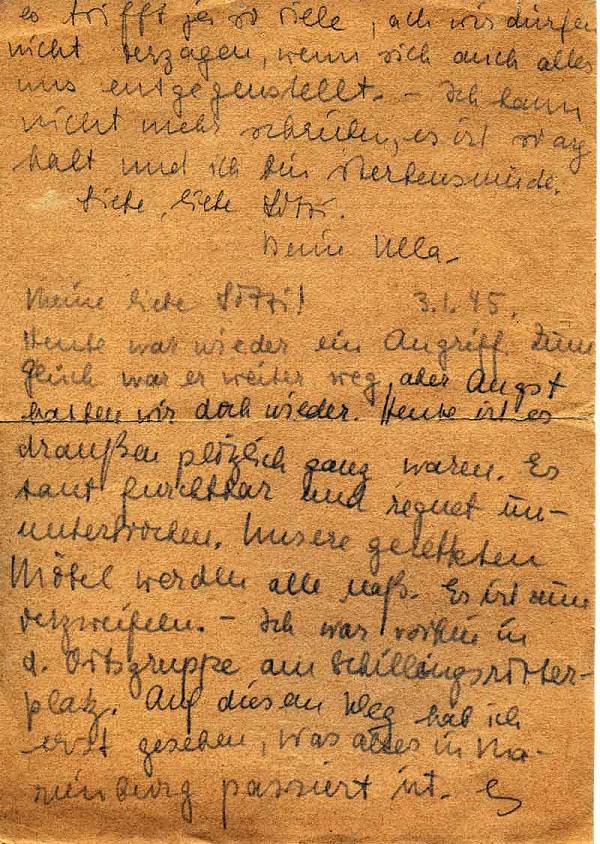 es trifft ja so viele, ach wir dürfen
nicht verzagen, wenn sich auch alles
uns entgegenstellt. – Ich kann
nicht mehr schreiben, es ist so arg
kalt und ich bin sterbensmüde.
Liebe, liebe
Deine Ulla.
Meine liebe 3.1.45.
Heute war wieder ein Angriff. Zum
Glück war er weiter weg, aber Angst
hatten wir doch wieder. Heute ist es
draußen plötzlich ganz warm. Es
taut furchtbar und regnet un-
unterbrochen. Unsere geretteten
Möbel werden alle naß. Es ist zum
verzweifeln. – Ich war vorhin in
d. Ortsgruppe am Schillingsrotter-
platz. Auf diesem Weg hab ich
erst gesehen, was alles in Ma-
rienburg passiert ist. Es